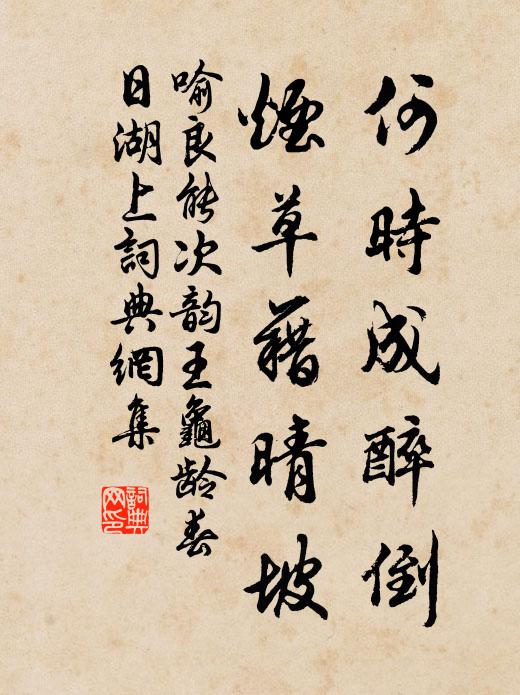 何時成醉倒
煙草藉晴坡
喻良能次韵王龜龄春
日湖上詞典網集
詞典网印